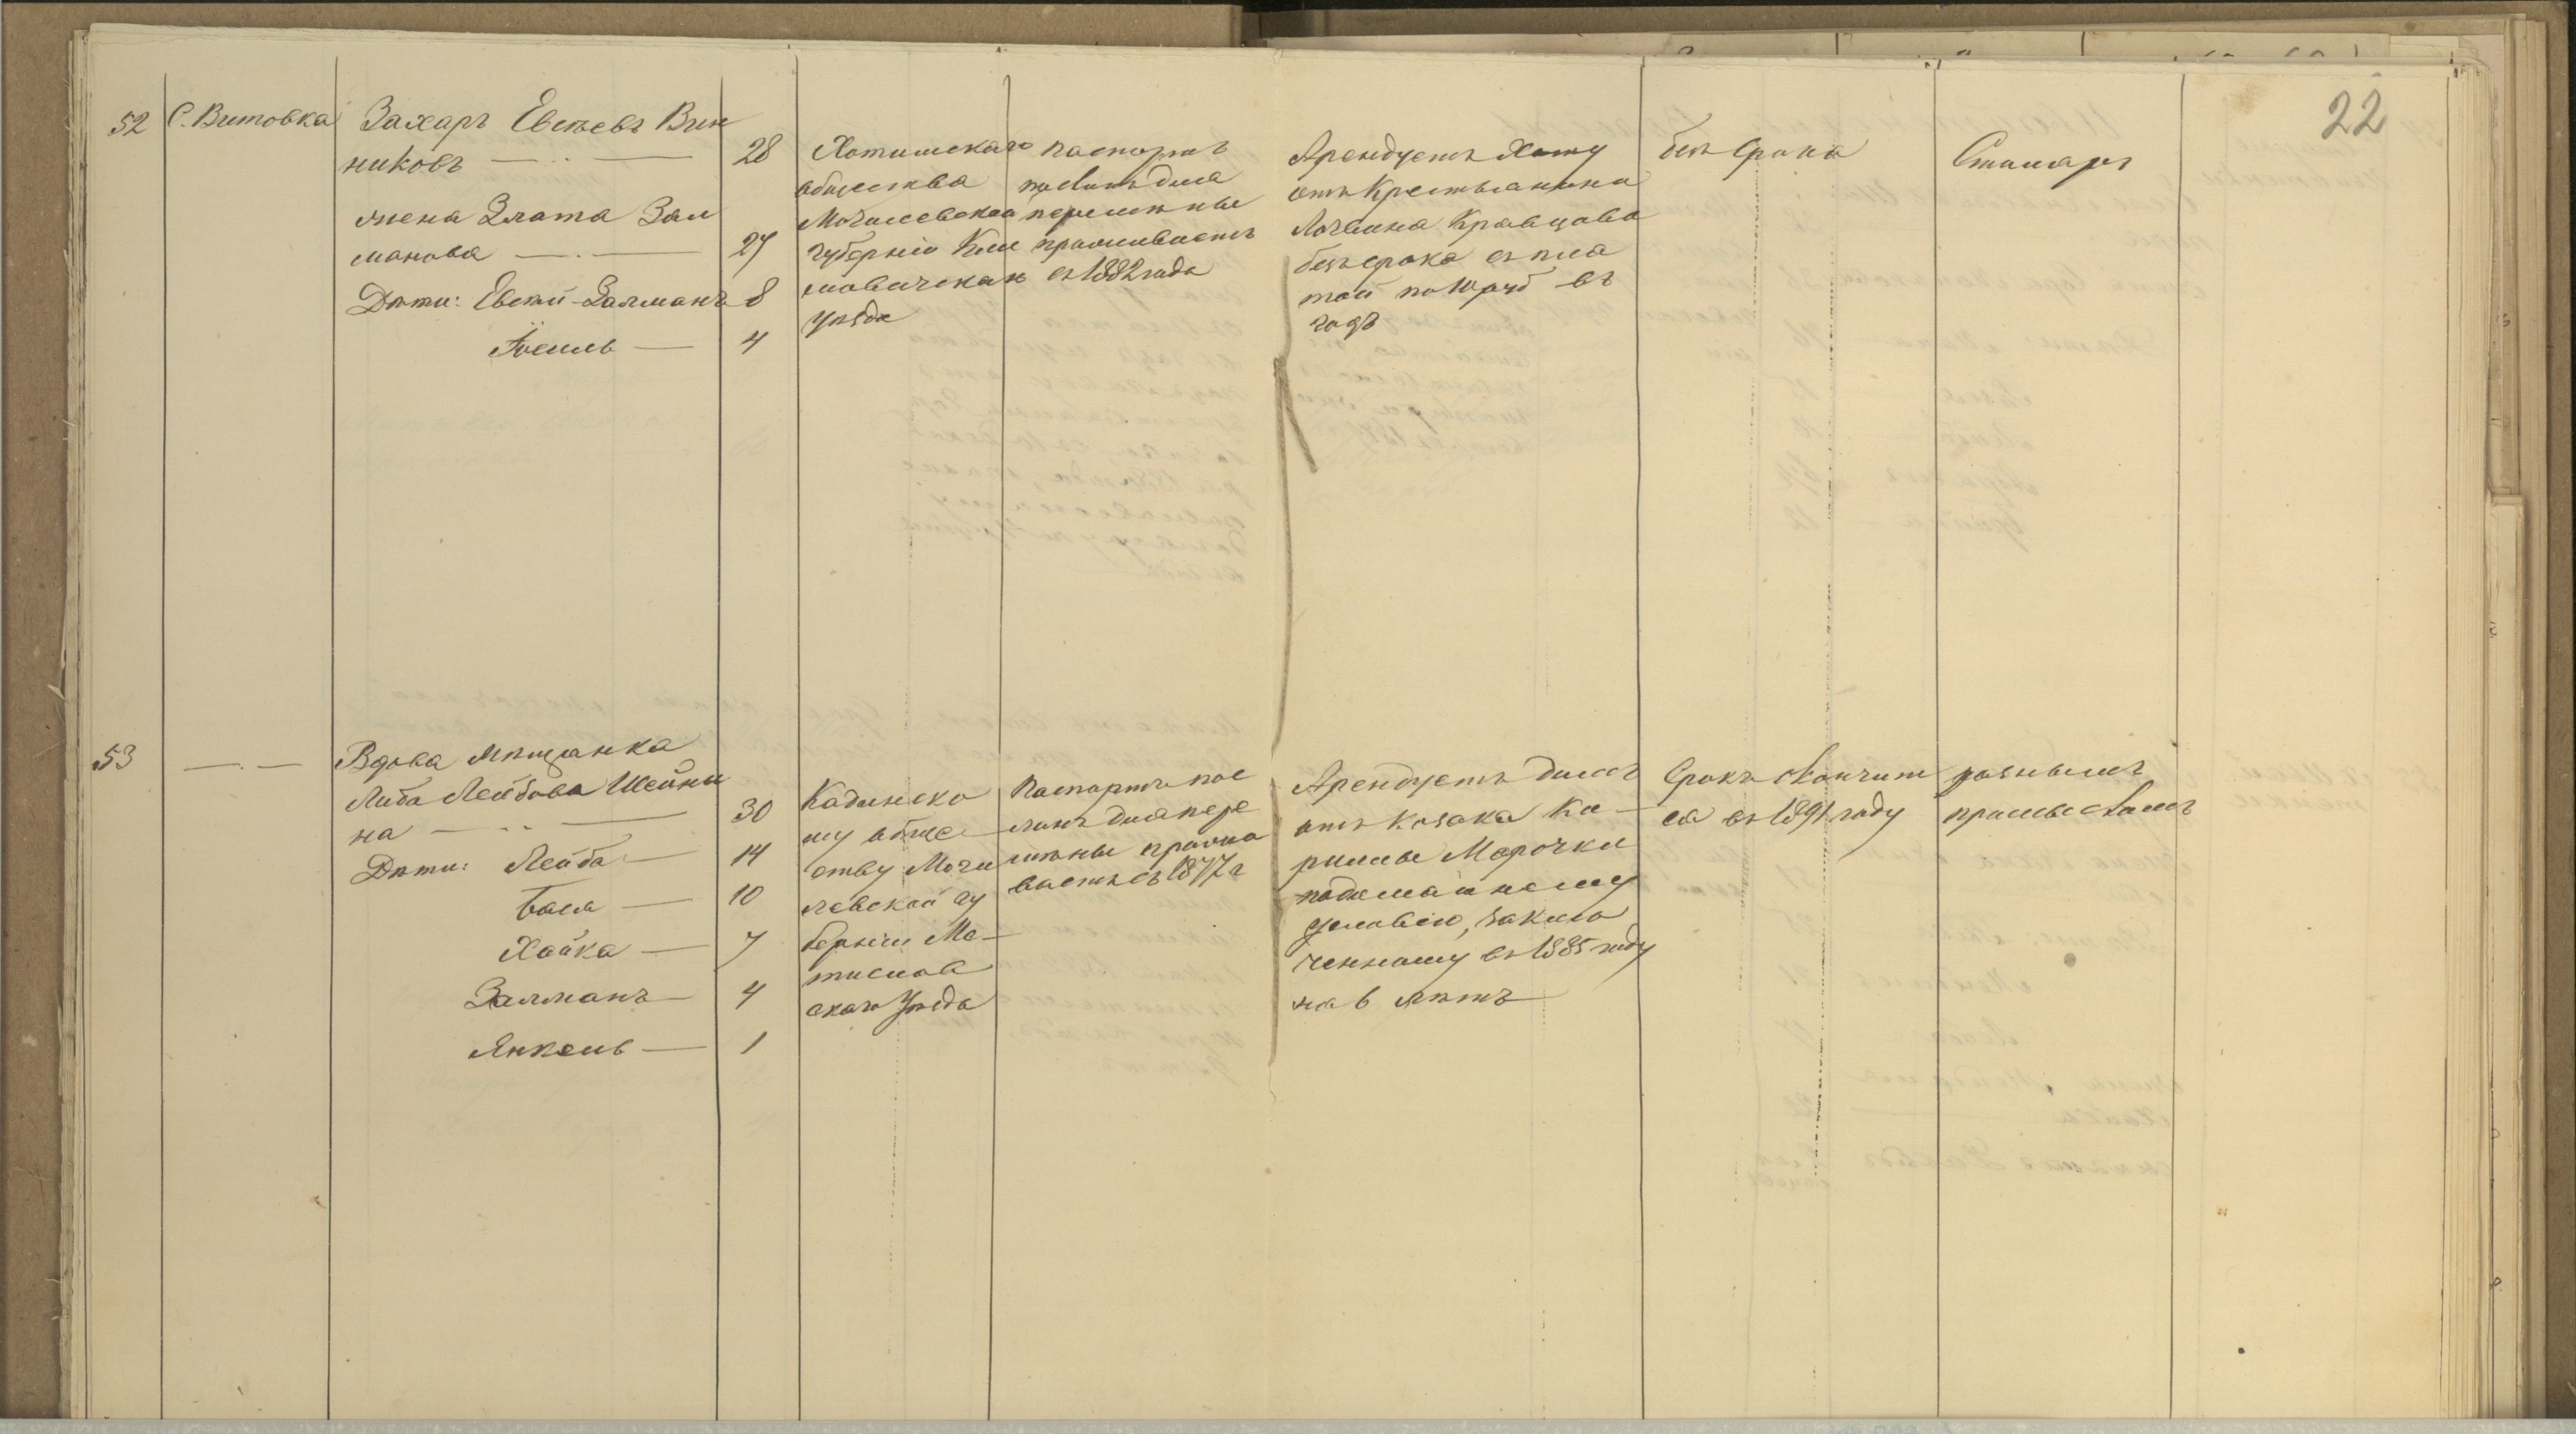 22
52
С. Витовка
Захаръ Евсѣевъ Вин
никовъ — 28
жена Злата Зал
манова — 27
Дѣти: Евсѣй-Залманъ 8
4
Хотимскаго
общества
Могилевской
губерніи Кли
мовичскаго
уѣзда
паспортъ
посланъ для
перемѣны
проживаетъ
съ 1882 года
Арендуетъ Хату
отъ Крестьянина
Логвина Кравцова
безъ срока съ пла
той по 10 руб въ
годъ
безъ срока
Столяръ
53
— . —
Вдова мѣщанка
Либа Лейбова Шейни
на — 30
Дѣти: Лейба — 14
Бася — 10
Хайка — 7
Залманъ — 4
Янкель — 1
Кадинско
му обще
ству Моги
левской гу
берніи Мс
тислав
скаго Уѣзда
Паспортъ пос
ланъ для пере
мѣны прожи
ваетъ съ 1877 г
Арендуетъ домъ
отъ козака Ки
рилы Марочки
по домашнему
условію, заклю
ченному въ 1885 году
на 6 лѣтъ
Срокъ окончит
ся въ 1891 году
разнымъ
промысломъ